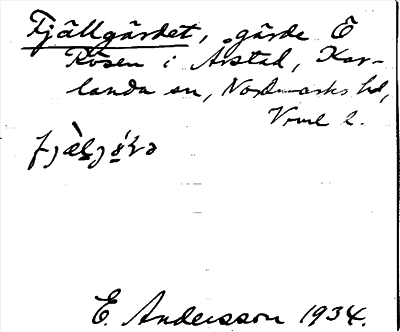 Fjällgärdet, gärde Ö
Rösen i Årstad, Kar-
landa sn, Nordmarks hd,
Vrml l.
E. Andersson 1934.